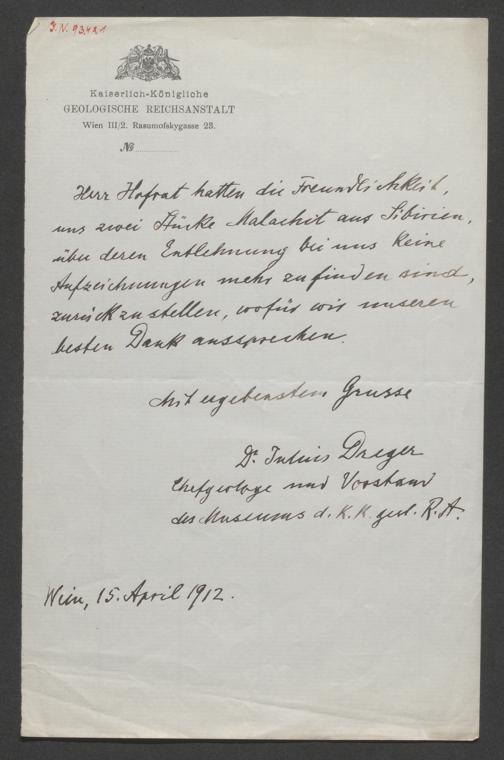 J. N. 93.421
Kaiserlich-Königliche
GEOLOGISCHE REICHSANSTALT
Wien III/2. Rasumofskygasse 23.
№
Herr Hofrat hatten die Freundlichkeit,
uns zwei Stücke Malachit aus Sibirien,
über deren Entlehnung bei uns keine
Aufzeichnungen mehr zu finden sind,
zurückzustellen, wofür wir unseren
besten Dank aussprechen.
Mit ergebenstem Grusse
Dr. Julius Dreger
Chefgeologe und Vorstand
des Museums d. K. K. geol. R. A.
Wien, 15. April 1912.